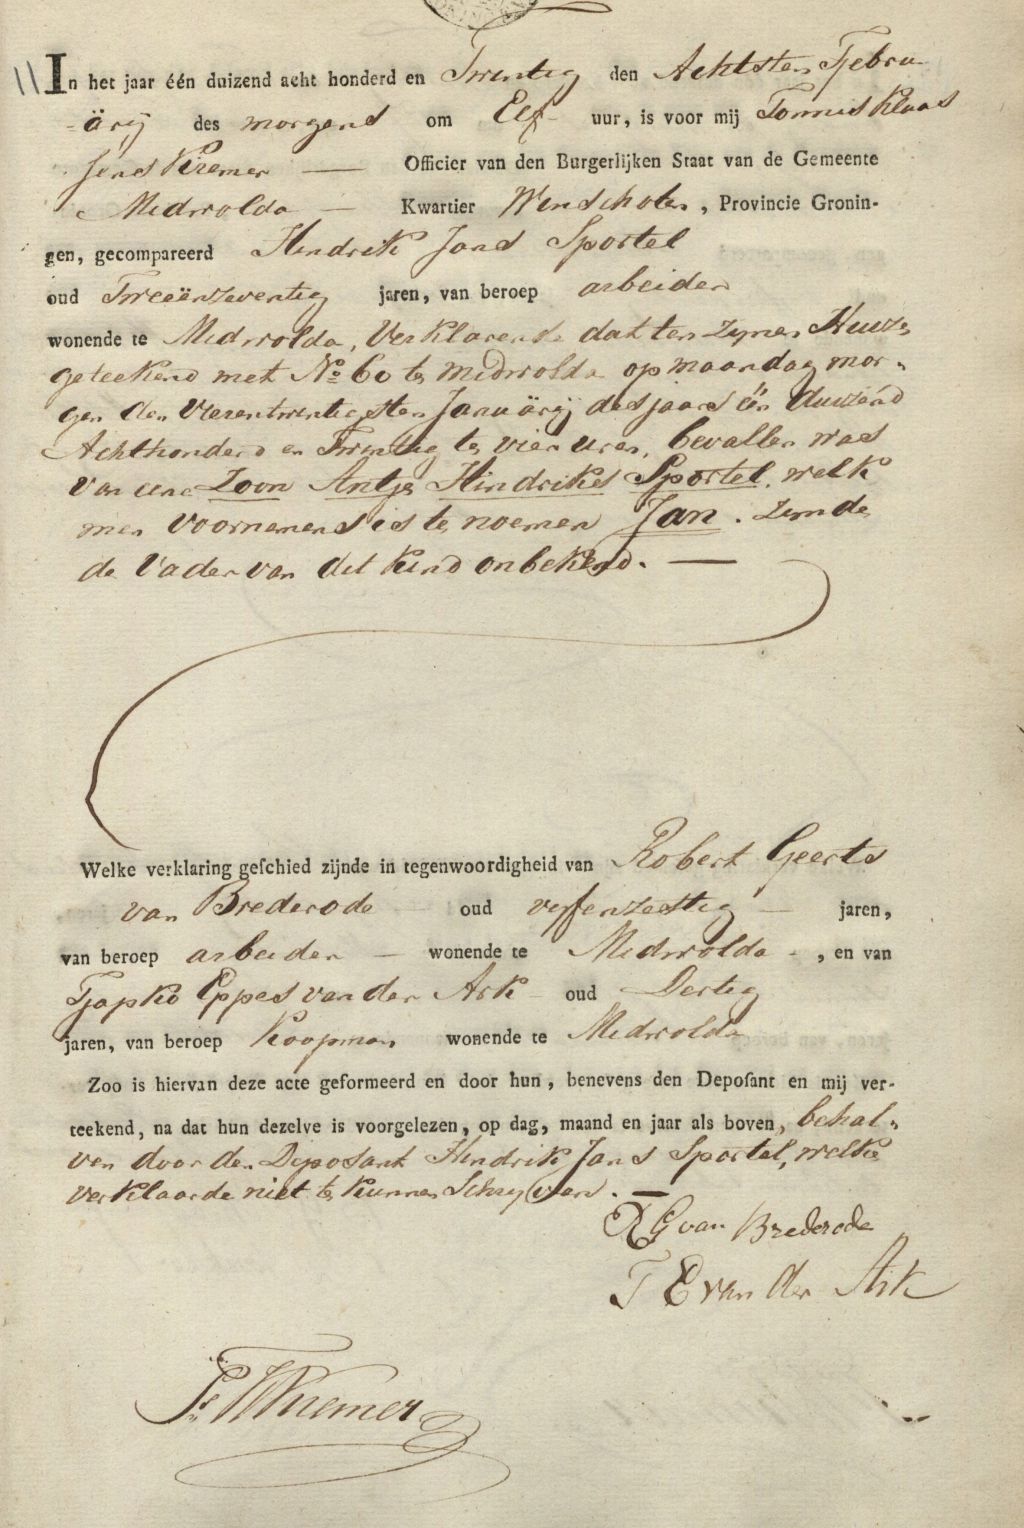 11 In het jaar één duizend acht honderd en Twintig den Achtsten Febru-
-ärij des morgens om Elf uur, is voor mij Tonnis Klaas
Jans Kremer — Officier van den Burgerlijken Staat van de Gemeente
Midwolda — Kwartier Winschoten, Provincie Gronin-
gen, gecompareerd Hindrik Jans Sportel
oud Tweeënzeventig jaren, van beroep arbeider
wonende te Midwolda, Verklarende dat ten zijnen Huize
geteekend met No 60 te Midwolda op maandag mor-
gen den Vierentwintigsten Januärij des jaars één duizend
Achthonderd en Twintig te vier uren, bevallen was
van eene Zoon Antje Hindriks Sportel, welk
men voornemens is te noemen Jan. zijnde
de Vader van dit kind onbekend. —
Welke verklaring geschied zijnde in tegenwoordigheid van Robert Geerts
van Brederode — oud vyfenzestig — jaren,
van beroep arbeider — wonende te Midwolda -, en van
Tjapko Eppes van der Ark - oud Dertig
jaren, van beroep Koopman wonende te Midwolda
Zoo is hiervan deze acte geformeerd en door hun, benevens den Deposant en mij ver-
teekend, na dat hun dezelve is voorgelezen, op dag, maand en jaar als boven, behal-
ven door den Deposant Hindrik Jans Sportel, welke
verklaarde niet te kunnen Schryven. —
R G van Brederode
T E van der Ark
Kremer